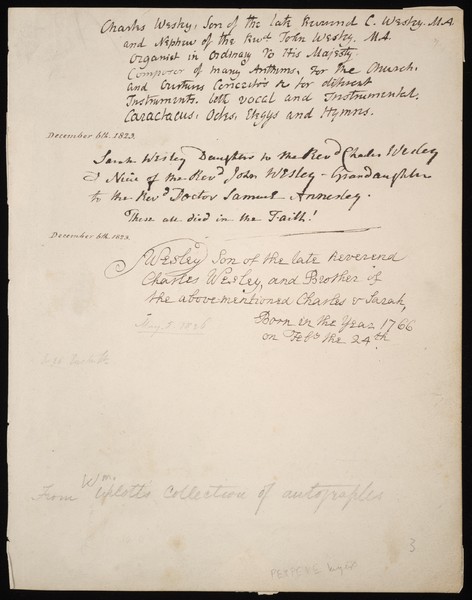 Charles Wesley, Son of the late Reverend C. Wesley. M.A
and Nephew of the Revd. John Wesley. M.A.
Organist in Ordinary to His Majesty.
Composer of many Anthems, for the Church,
and Concerto's & for different
Instruments, both vocal and Instrumental.
Caractacus, Odes, Elegys and Hymns.
December 6th. 1823.
Sarah Wesley Daughter to the Revd Charles Wesley
& Niece of the Revd John Wesley - Grandaughter
to the Revd Doctor Samuel Annesley.
These all died in the Faith!
December 6th. 1823.
S Wesley Son of the late Reverend
Charles Wesley, and Brother of
the abovementioned Charles & Sarah,
Born in the Year 1766
on Feby the 24th
May 5. 1826
From Wm. Upcott's collection of autographs
3